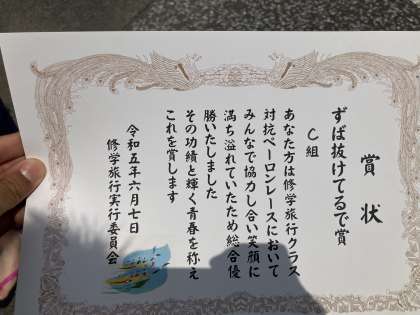 賞状
ずば抜けてるで賞
C組
あなた方は修学旅行クラス
対抗ペーロンレースにおいて
みんなで協力し合い笑顔に
満ち溢れていたため総合優
勝いたしました
その功績と輝く青春を称え
これを賞します
令和五年六月七日
修学旅行実行委員会